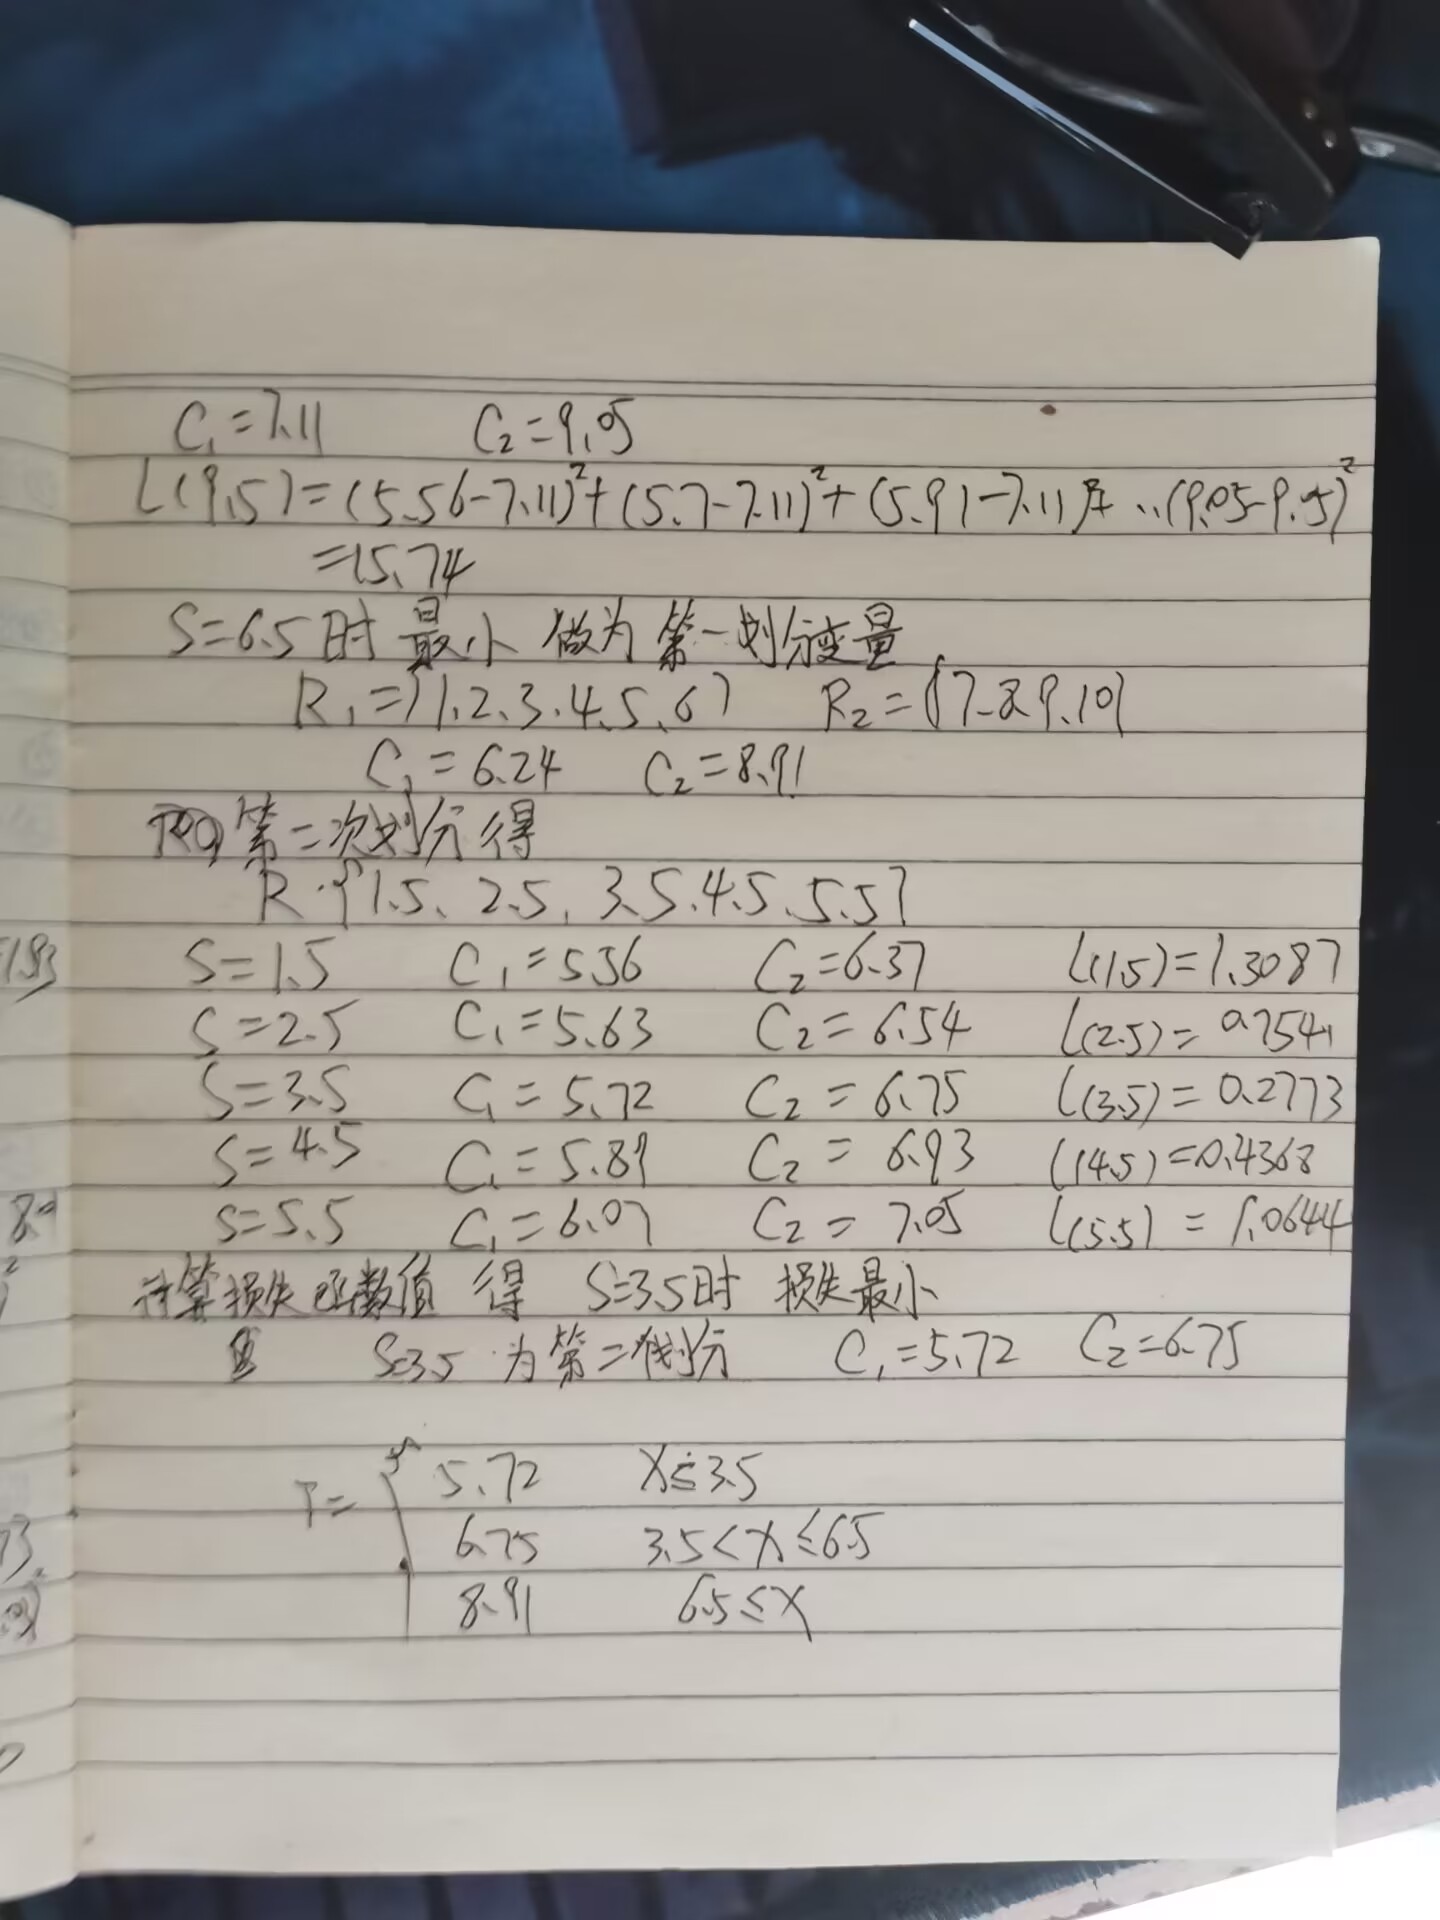 C₁=7.11 C₂=9.05
L(9.5)=(5.56-7.11)²+(5.7-7.11)²+(5.91-7.11)²+..(9.05-9.05)²
=15.74
S=6.5时 最小 做为 第一划分变量
R₁={1、2、3、4、5、6} R₂={7、8、9、10}
C₁=6.24 C₂=8.91
第二次划分得
R={1.5、2.5、3.5、4.5、5.5}
S=1.5 C₁=5.56 C₂=6.37 L(1.5)=1.3087
S=2.5 C₁=5.63 C₂=6.54 L(2.5)=0.7541
S=3.5 C₁=5.72 C₂=6.75 L(3.5)=0.2773
S=4.5 C₁=5.89 C₂=6.93 L(4.5)=0.4368
S=5.5 C₁=6.07 C₂=7.05 L(5.5)=1.0644
计算损失函数值 得 S=3.5时 损失最小
S=3.5 为第二划分 C₁=5.72 C₂=6.75
T=
5.72 X≤3.5
6.75 3.5<X≤6.5
8.91 6.5≤X